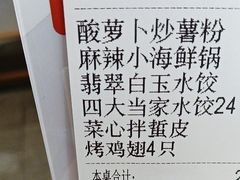 酸萝卜炒薯粉
麻辣小海鲜锅
翡翠白玉水饺
四大当家水饺24
菜心拌蜇皮
烤鸡翅4只
本桌合计: